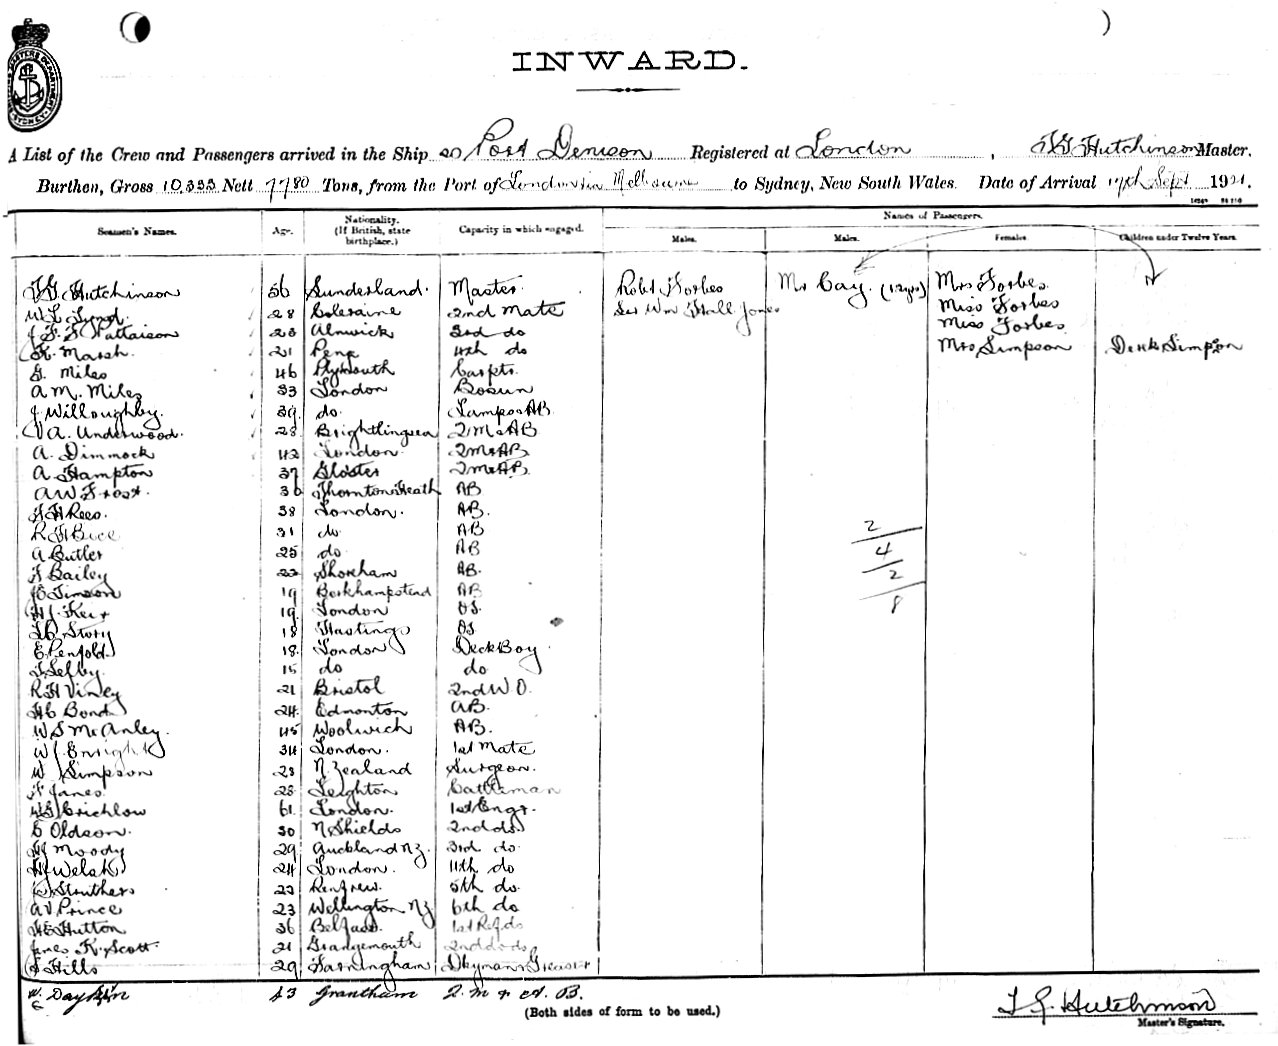 INWARD.
A List of the Crew and Passengers arrived in the Ship ss Port Denison Registered at London , T G Hutchinson Master,
Burthen, Gross 10,333 Nett 7780 Tons, from the Port of London via Melbourne to Sydney, New South Wales. Date of Arrival 17th Sept 1921.
Names of Passengers.
Seamen's Names. Age. Nationality. (If British, state birthplace.) Capacity in which engaged. Males. Males. Females. Children under Twelve Years.
T G Hutchinson 56 Sunderland. Master. Robt Forbes Mr Cay. (12yrs) Mrs Forbes
W L Lund. 28 Coleraine 2nd Mate Sir Wm Hall Jones Miss Forbes
J F S Pattaison 23 Alnwick 3rd do Miss Forbes
K. Marsh. 21 Penge 4th do Mrs Simpson Derek Simpson
G. Miles 46 Plymouth Carptr.
A M. Miles 33 London Bosun
J Willoughby. 39 do. Lamps AB.
V A. Underwood. 28 Brightlingsea 2 M & AB
A. Dimmock 42 London. 2 M & AB
A Hampton 37 Gloster 2 M & AB.
A W Frost. 36 Thornton Heath AB
F H Rees. 38 London. AB.
R H Bice 31 do AB 2
A Butler 25 do AB 4
F Bailey 22 Shoreham AB. 2
J C Timson 19 Berkhampstead AB 8
H J. Keir 19 London OS.
L C Story 18 Hastings OS
E Penfold 18. London Deck Boy
T Selby. 15 do do
R H Viney 21 Bristol 2nd W O.
H C Bond 24 Edmonton AB.
W S McAnley. 45 Woolwich AB.
W J Enright 34 London. 1st Mate
W Simpson 23 N. Zealand Surgeon.
F Janes 28 Leighton Cattleman
W G Crichlow 61 London. 1st Engr.
C Oldson. 30 N. Shields 2nd do
H Moody 29 Auckland N.Z. 3rd do
H J Welsh 24 London. 4th do
C Struthers 22 Renfrew. 5th do
A V Prince 23 Wellington NZ 6th do
H E Hutton 36 Belfast. 1st Ref. do
James K. Scott. 21 Grangemouth 2nd do do
S Hills 29 Farningham Dkyman & Greaser
W. C Daykin 43 Grantham 2. M & A. B.
(Both sides of form to be used.)
T G. Hutchinson
Master's Signature.